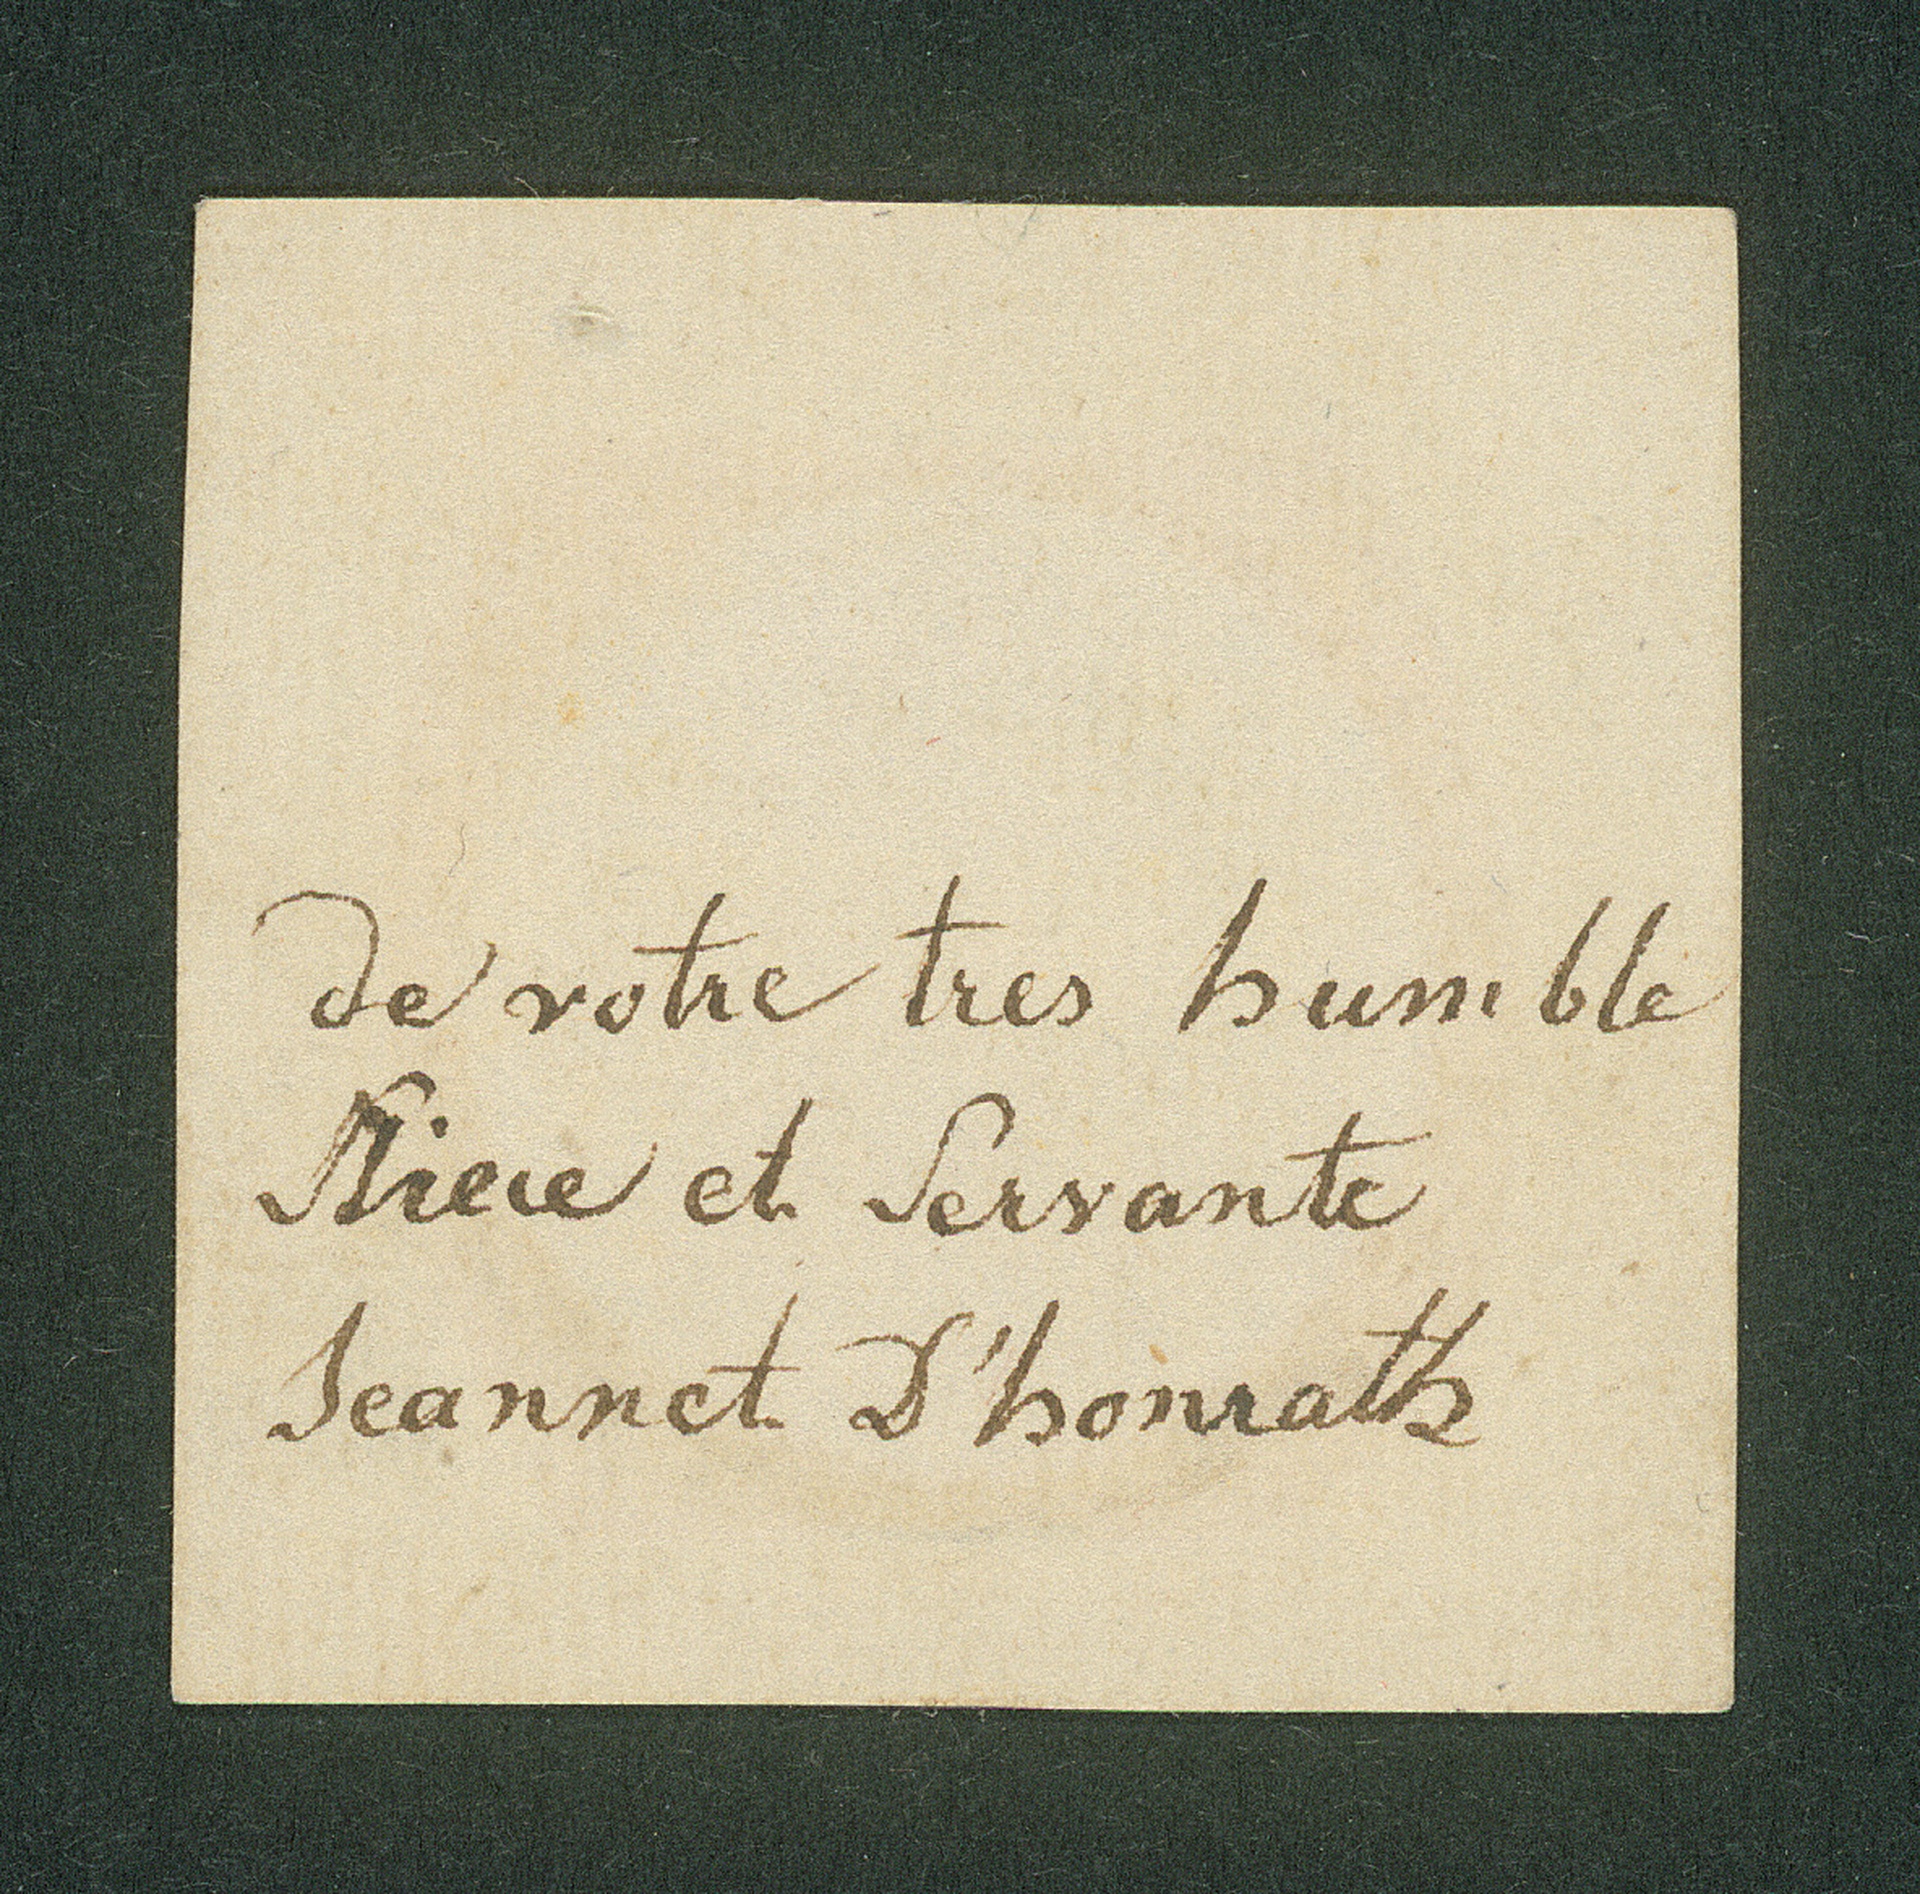 de votre tres humble
Niece et Servante
Jeannet D'honrath